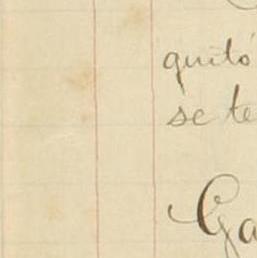 quitó
se te
Ga